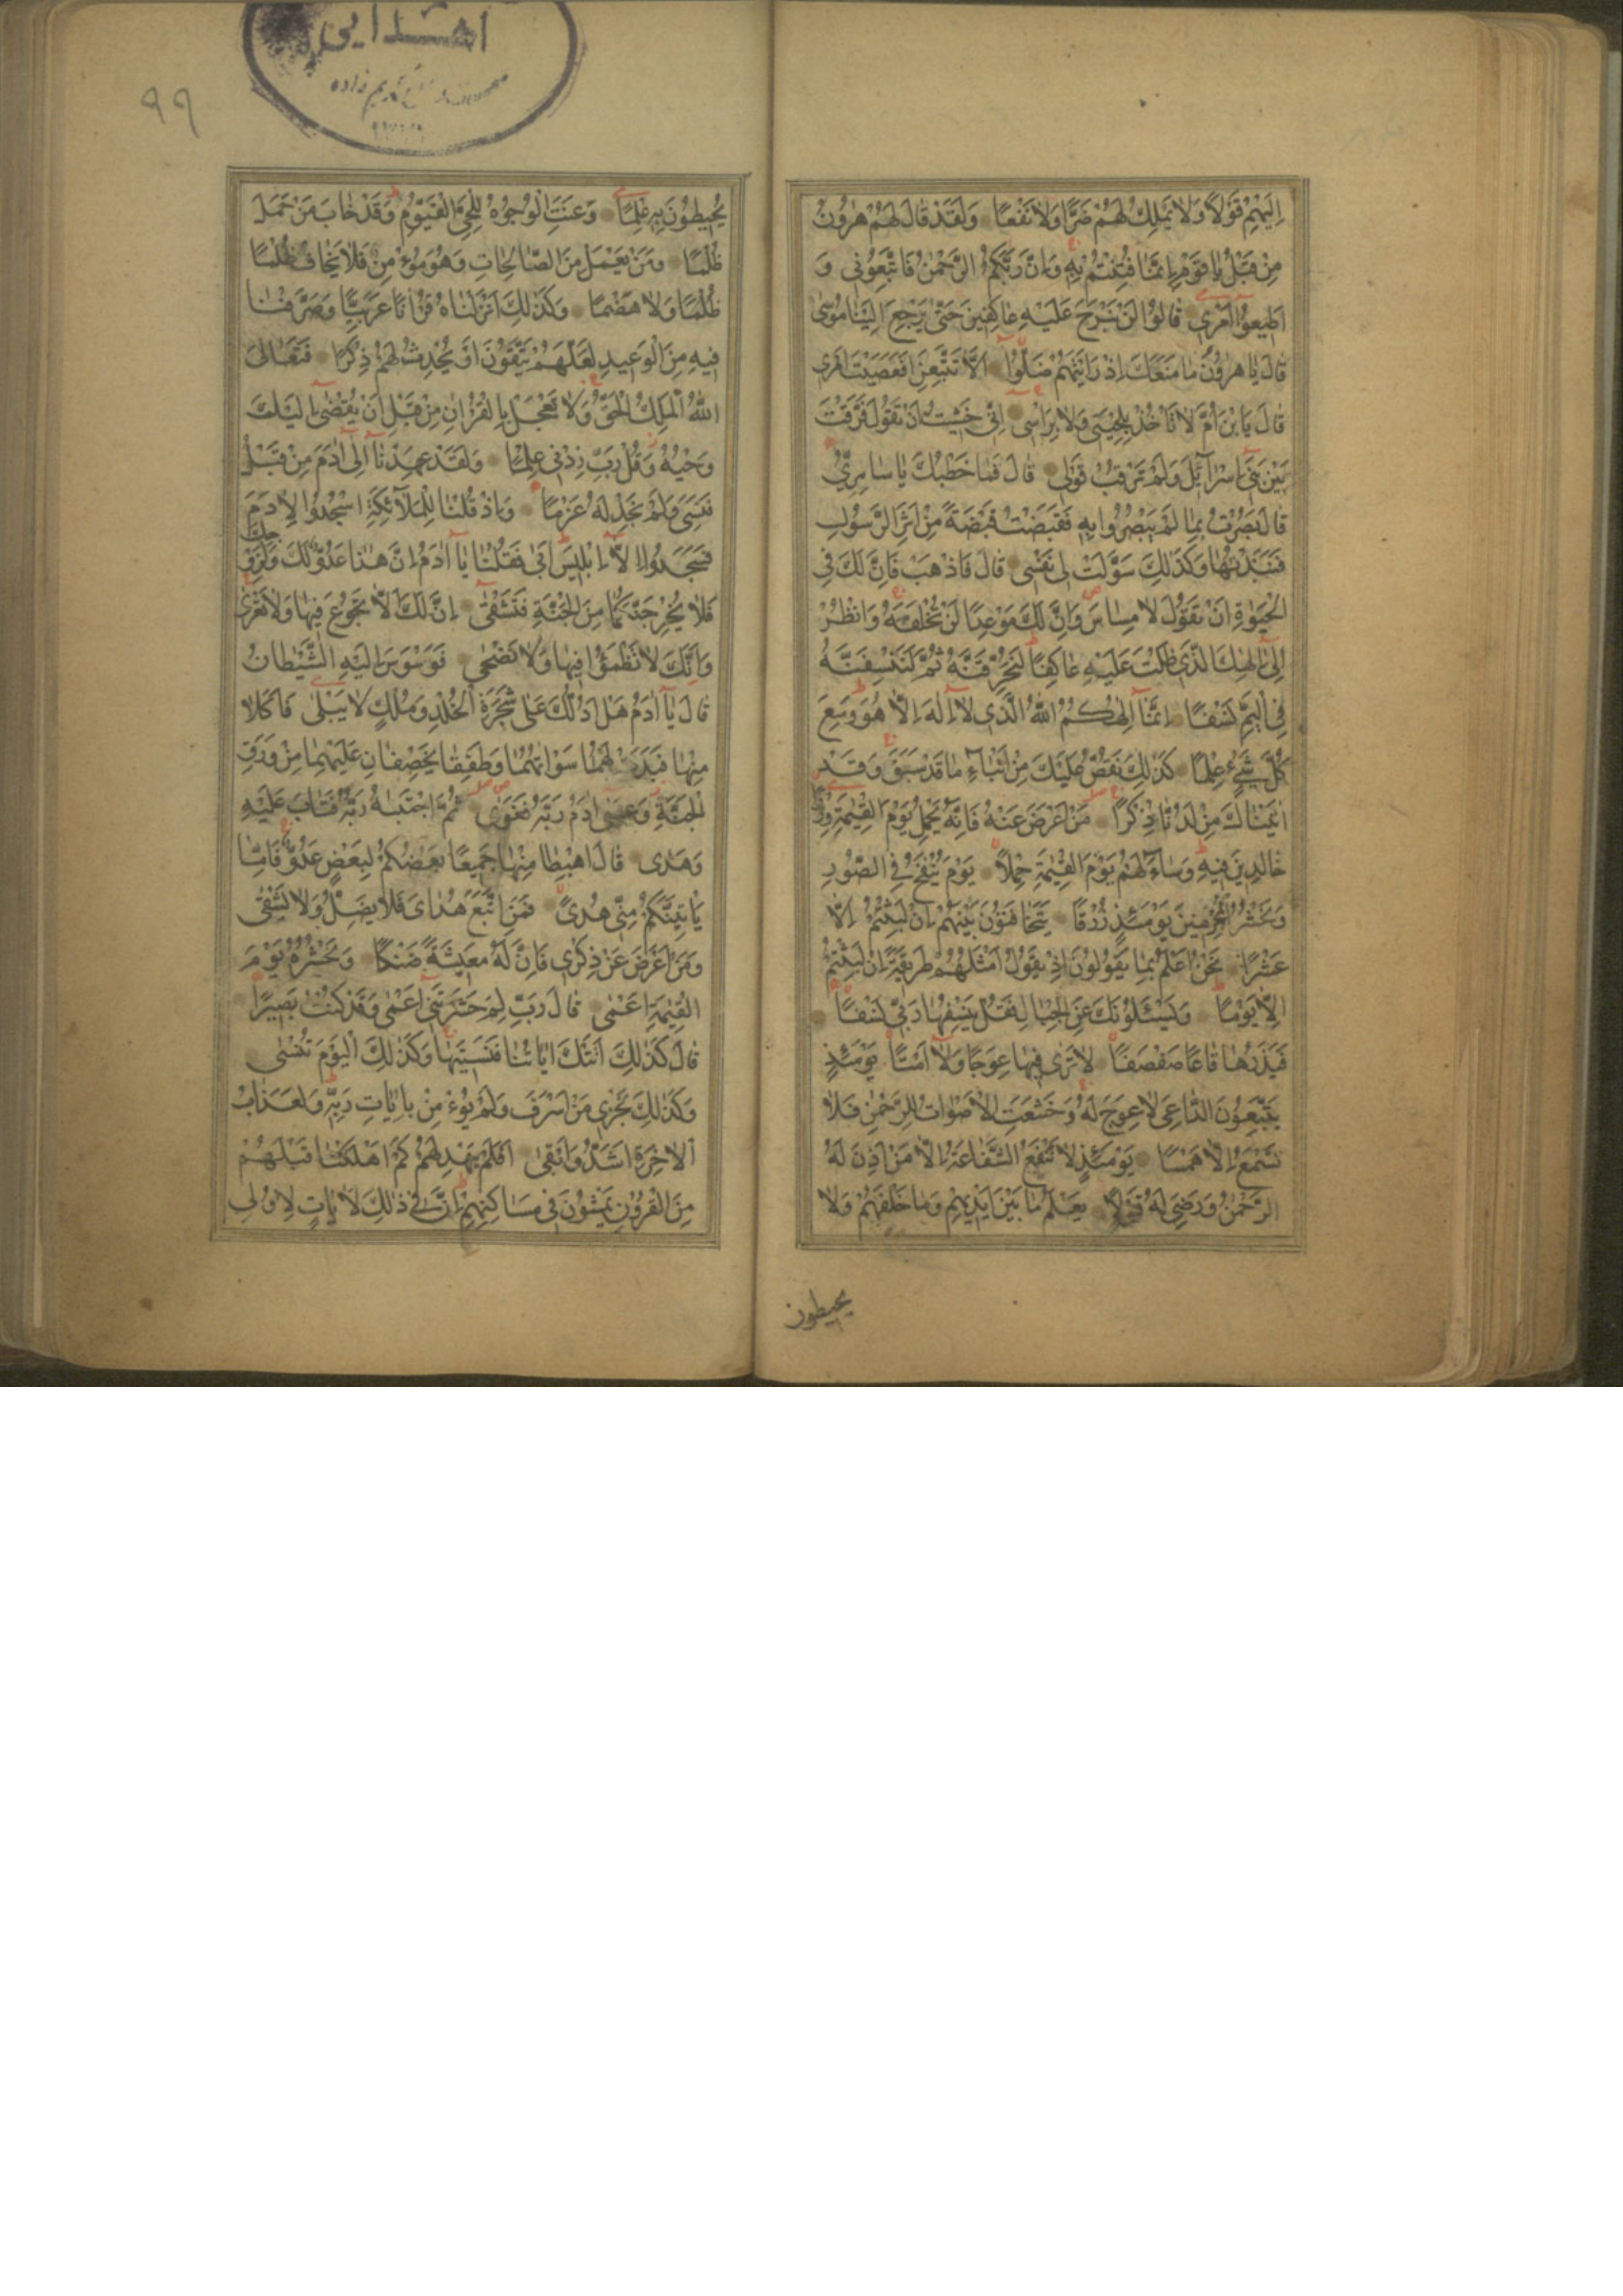 اِلَيْهِمْ قَوْلًا وَلَا يَمْلِكُ لَهُمْ ضَرًّا وَلَا نَفْعًا وَلَقَدْ قَالَ لَهُمْ هٰرُونُ
مِنْ قَبْلُ يَا قَوْمِ اِنَّمَا فُتِنْتُمْ بِهِ وَاِنَّ رَبَّكُمُ الرَّحْمٰنُ فَاتَّبِعُونِى وَ
اَطِيعُوا اَمْرِى قَالُوا لَنْ نَبْرَحَ عَلَيْهِ عَاكِفِينَ حَتّٰى يَرْجِعَ اِلَيْنَا مُوسٰى
قَالَ يَا هٰرُونُ مَا مَنَعَكَ اِذْ رَاَيْتَهُمْ ضَلُّوا اَلَّا تَتَّبِعَنِ اَفَعَصَيْتَ اَمْرِى
قَالَ يَا بْنَ اُمَّ لَا تَاْخُذْ بِلِحْيَتِى وَلَا بِرَاْسِى اِنِّى خَشِيتُ اَنْ تَقُولَ فَرَّقْتَ
بَيْنَ بَنِى اِسْرَائِلَ وَلَمْ تَرْقُبْ قَوْلِى قَالَ فَمَا خَطْبُكَ يَا سَامِرِىُّ
قَالَ بَصُرْتُ بِمَا لَمْ يَبْصُرُوا بِهِ فَقَبَضْتُ قَبْضَةً مِنْ اَثَرِ الرَّسُولِ
فَنَبَذْتُهَا وَكَذٰلِكَ سَوَّلَتْ لِى نَفْسِى قَالَ فَاذْهَبْ فَاِنَّ لَكَ فِى
الْحَيٰوةِ اَنْ تَقُولَ لَا مِسَاسَ وَاِنَّ لَكَ مَوْعِدًا لَنْ تُخْلَفَهُ وَانْظُرْ
اِلٰى اِلٰهِكَ الَّذِى ظَلْتَ عَلَيْهِ عَاكِفًا لَنُحَرِّقَنَّهُ ثُمَّ لَنَنْسِفَنَّهُ
فِى الْيَمِّ نَسْفًا اِنَّمَا اِلٰهُكُمُ اللّٰهُ الَّذِى لَا اِلٰهَ اِلَّا هُوَ وَسِعَ
كُلَّ شَىْءٍ عِلْمًا كَذٰلِكَ نَقُصُّ عَلَيْكَ مِنْ اَنْبَاءِ مَا قَدْ سَبَقَ وَقَدْ
اٰتَيْنَاكَ مِنْ لَدُنَّا ذِكْرًا مَنْ اَعْرَضَ عَنْهُ فَاِنَّهُ يَحْمِلُ يَوْمَ الْقِيٰمَةِ وِزْرًا
خَالِدِينَ فِيهِ وَسَاءَ لَهُمْ يَوْمَ الْقِيٰمَةِ حِمْلًا يَوْمَ يُنْفَخُ فِى الصُّورِ
وَنَحْشُرُ الْمُجْرِمِينَ يَوْمَئِذٍ زُرْقًا يَتَخَافَتُونَ بَيْنَهُمْ اِنْ لَبِثْتُمْ اِلَّا
عَشْرًا نَحْنُ اَعْلَمُ بِمَا يَقُولُونَ اِذْ يَقُولُ اَمْثَلُهُمْ طَرِيقَةً اِنْ لَبِثْتُمْ
اِلَّا يَوْمًا وَيَسْئَلُونَكَ عَنِ الْجِبَالِ فَقُلْ يَنْسِفُهَا رَبِّى نَسْفًا
فَيَذَرُهَا قَاعًا صَفْصَفًا لَا تَرٰى فِيهَا عِوَجًا وَلَا اَمْتًا يَوْمَئِذٍ
يَتَّبِعُونَ الدَّاعِىَ لَا عِوَجَ لَهُ وَخَشَعَتِ الْاَصْوَاتُ لِلرَّحْمٰنِ فَلَا
تَسْمَعُ اِلَّا هَمْسًا يَوْمَئِذٍ لَا تَنْفَعُ الشَّفَاعَةُ اِلَّا مَنْ اَذِنَ لَهُ
الرَّحْمٰنُ وَرَضِىَ لَهُ قَوْلًا يَعْلَمُ مَا بَيْنَ اَيْدِيهِمْ وَمَا خَلْفَهُمْ وَلَا
يحيطون
٩٩
يُحِيطُونَ بِهِ عِلْمًا وَعَنَتِ الْوُجُوهُ لِلْحَىِّ الْقَيُّومِ وَقَدْ خَابَ مَنْ حَمَلَ
ظُلْمًا وَمَنْ يَعْمَلْ مِنَ الصَّالِحَاتِ وَهُوَ مُؤْمِنٌ فَلَا يَخَافُ ظُلْمًا
ظُلْمًا وَلَا هَضْمًا وَكَذٰلِكَ اَنْزَلْنَاهُ قُرْاٰنًا عَرَبِيًّا وَصَرَّفْنَا
فِيهِ مِنَ الْوَعِيدِ لَعَلَّهُمْ يَتَّقُونَ اَوْ يُحْدِثُ لَهُمْ ذِكْرًا فَتَعَالَى
اللّٰهُ الْمَلِكُ الْحَقُّ وَلَا تَعْجَلْ بِالْقُرْاٰنِ مِنْ قَبْلِ اَنْ يُقْضٰى اِلَيْكَ
وَحْيُهُ وَقُلْ رَبِّ زِدْنِى عِلْمًا وَلَقَدْ عَهِدْنَا اِلٰى اٰدَمَ مِنْ قَبْلُ
فَنَسِىَ وَلَمْ نَجِدْ لَهُ عَزْمًا وَاِذْ قُلْنَا لِلْمَلٰٓئِكَةِ اسْجُدُوا لِاٰدَمَ
فَسَجَدُوا اِلَّا اِبْلِيسَ اَبٰى فَقُلْنَا يَا اٰدَمُ اِنَّ هٰذَا عَدُوٌّ لَكَ وَلِزَوْجِكَ
فَلَا يُخْرِجَنَّكُمَا مِنَ الْجَنَّةِ فَتَشْقٰى اِنَّ لَكَ اَلَّا تَجُوعَ فِيهَا وَلَا تَعْرٰى
وَاَنَّكَ لَا تَظْمَؤُا فِيهَا وَلَا تَضْحٰى فَوَسْوَسَ اِلَيْهِ الشَّيْطَانُ
قَالَ يَا اٰدَمُ هَلْ اَدُلُّكَ عَلٰى شَجَرَةِ الْخُلْدِ وَمُلْكٍ لَا يَبْلٰى فَاَكَلَا
مِنْهَا فَبَدَتْ لَهُمَا سَوْاٰتُهُمَا وَطَفِقَا يَخْصِفَانِ عَلَيْهِمَا مِنْ وَرَقِ
الْجَنَّةِ وَعَصٰى اٰدَمُ رَبَّهُ فَغَوٰى ثُمَّ اجْتَبٰهُ رَبُّهُ فَتَابَ عَلَيْهِ
وَهَدٰى قَالَ اهْبِطَا مِنْهَا جَمِيعًا بَعْضُكُمْ لِبَعْضٍ عَدُوٌّ فَاِمَّا
يَاْتِيَنَّكُمْ مِنِّى هُدًى فَمَنِ اتَّبَعَ هُدَاىَ فَلَا يَضِلُّ وَلَا يَشْقٰى
وَمَنْ اَعْرَضَ عَنْ ذِكْرِى فَاِنَّ لَهُ مَعِيشَةً ضَنْكًا وَنَحْشُرُهُ يَوْمَ
الْقِيٰمَةِ اَعْمٰى قَالَ رَبِّ لِمَ حَشَرْتَنِى اَعْمٰى وَقَدْ كُنْتُ بَصِيرًا
قَالَ كَذٰلِكَ اَتَتْكَ اٰيَاتُنَا فَنَسِيتَهَا وَكَذٰلِكَ الْيَوْمَ تُنْسٰى
وَكَذٰلِكَ نَجْزِى مَنْ اَسْرَفَ وَلَمْ يُؤْمِنْ بِاٰيَاتِ رَبِّهِ وَلَعَذَابُ
الْاٰخِرَةِ اَشَدُّ وَاَبْقٰى اَفَلَمْ يَهْدِ لَهُمْ كَمْ اَهْلَكْنَا قَبْلَهُمْ
مِنَ الْقُرُونِ يَمْشُونَ فِى مَسَاكِنِهِمْ اِنَّ فِى ذٰلِكَ لَاٰيَاتٍ لِاُولِى